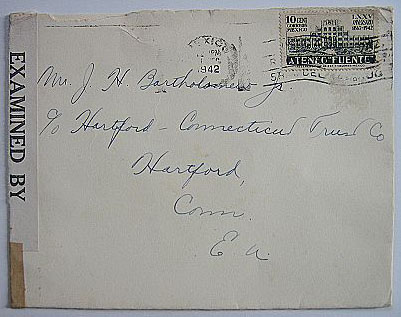 EXAMINED BY
MEXICO
1942
10 CENT
CORREOS
MEXICO
LXXV
1867-1942
ATENEO FUENTE
Mr. J. H. Bartholomew Jr.
c/o Hartford - Connecticut Trust Co
Hartford,
Conn.
E. U.